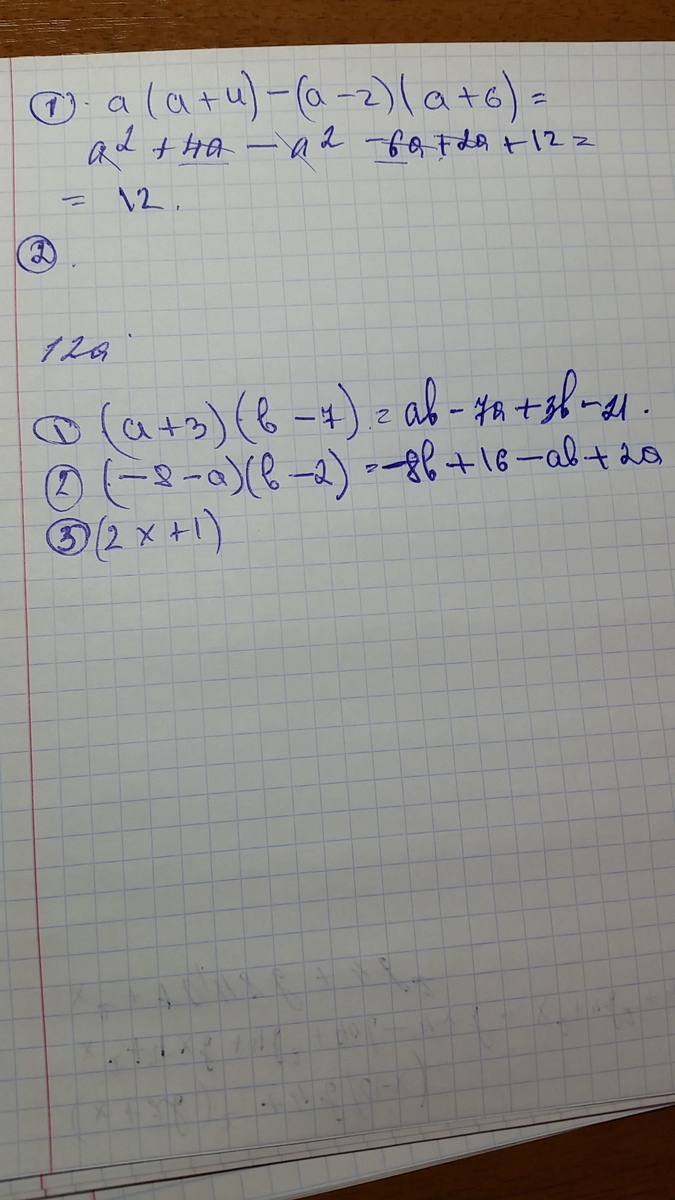 ① a(a+4)-(a-2)(a+6)=
a² + 4a - a² - 6a + 2a + 12 =
= 12.
② .
12a
① (a+3)(b-7) = ab - 7a + 3b - 21.
② (-8-a)(b-2) = -8b + 16 - ab + 2a
③ (2x+1)